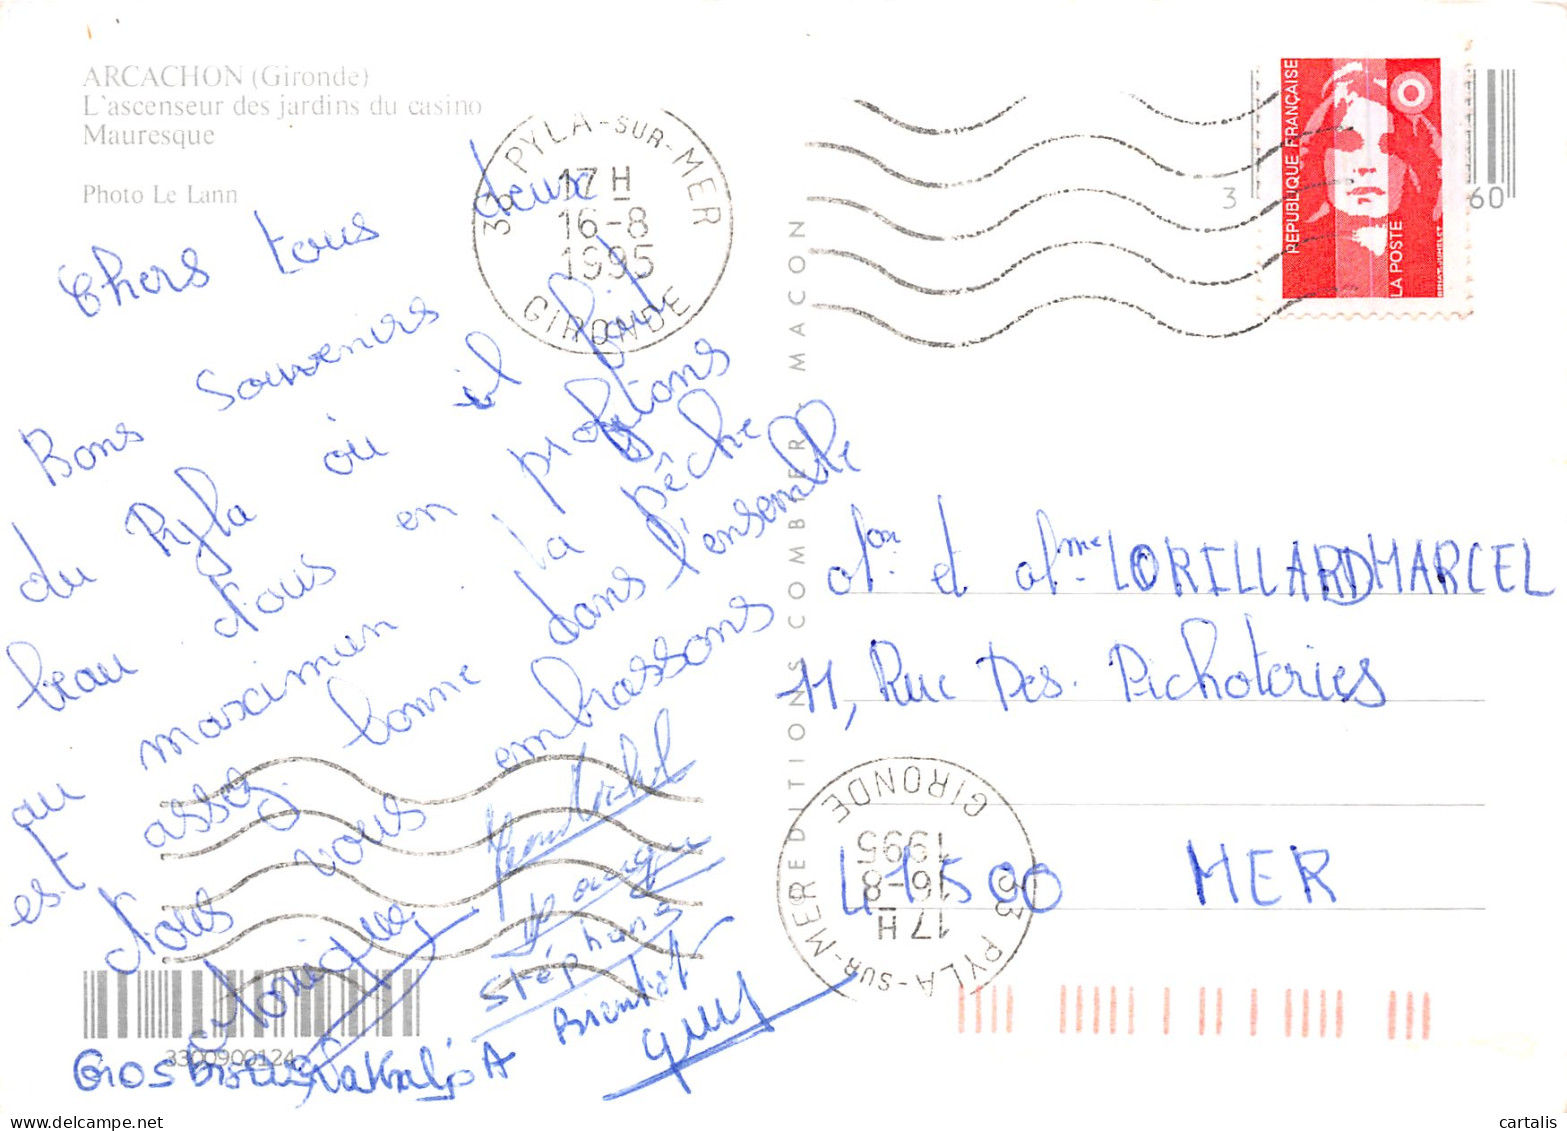 ARCACHON (Gironde)
L'ascenseur des jardins du casino
Mauresque
Photo Le Lann
33 PYLA-SUR-MER
17 H
16-8
1995
GIRONDE
3
60
REPUBLIQUE FRANÇAISE
LA POSTE
Chers tous deux
Bons souvenirs
du Pyla où il fait
beau Nous en profitons
au maximun la pêche
est assez bonne dans l'ensemble
Nous vous embrassons
Monique
Michel
Stéphane
Gros Bisous Nathalie A
Bientôt
MEREDITIONS COMBIER MACON
Mon et Mme LORILLARD MARCEL
11, Rue Des Pichoteries
41500 MER
33 PYLA-SUR-MER
17 H
16-8
1995
GIRONDE
3300900124
cartalis